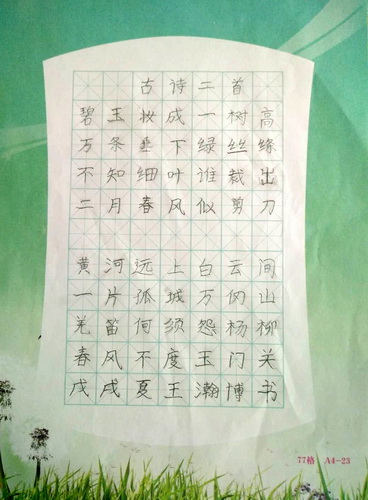 古诗二首
碧玉妆成一树高
万条垂下绿丝缘
不知细叶谁裁出
二月春风似剪刀
黄河远上白云间
一片孤城万仞山
羌笛何须怨杨柳
春风不度玉门关
戊戌夏王瀚博书
77格 A4-23